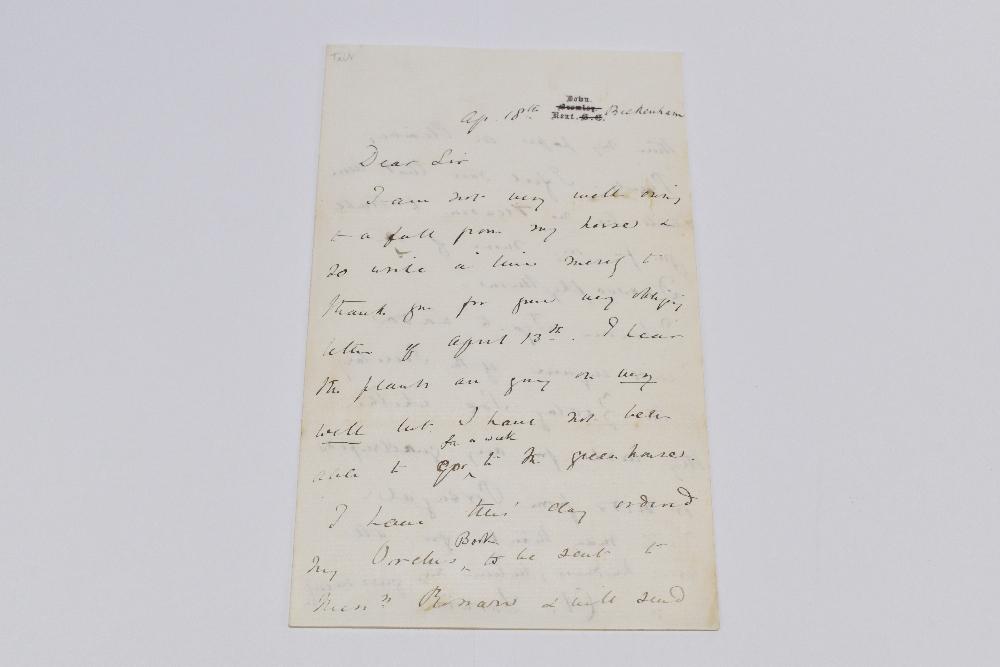 Down.
Bromley
Kent. S.E.
Ap. 18th Beckenham
Dear Sir
I am not very well owing
to a fall from my horse &
so write a line merely to
thank you for your very obliging
letter of April 13th. I hear
the plants are going on very
well but I have not been
able to go for a week to the green houses.
I have this day ordered
my Orchis Book to be sent to
Messrs & will send